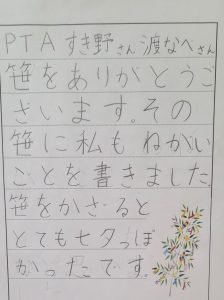 PTAすき野さん渡なべさん
笹をありがとうご
ざいます。その
笹に私もねがい
ごとを書きました。
笹をかざると
とても七夕っぽ
かったです。